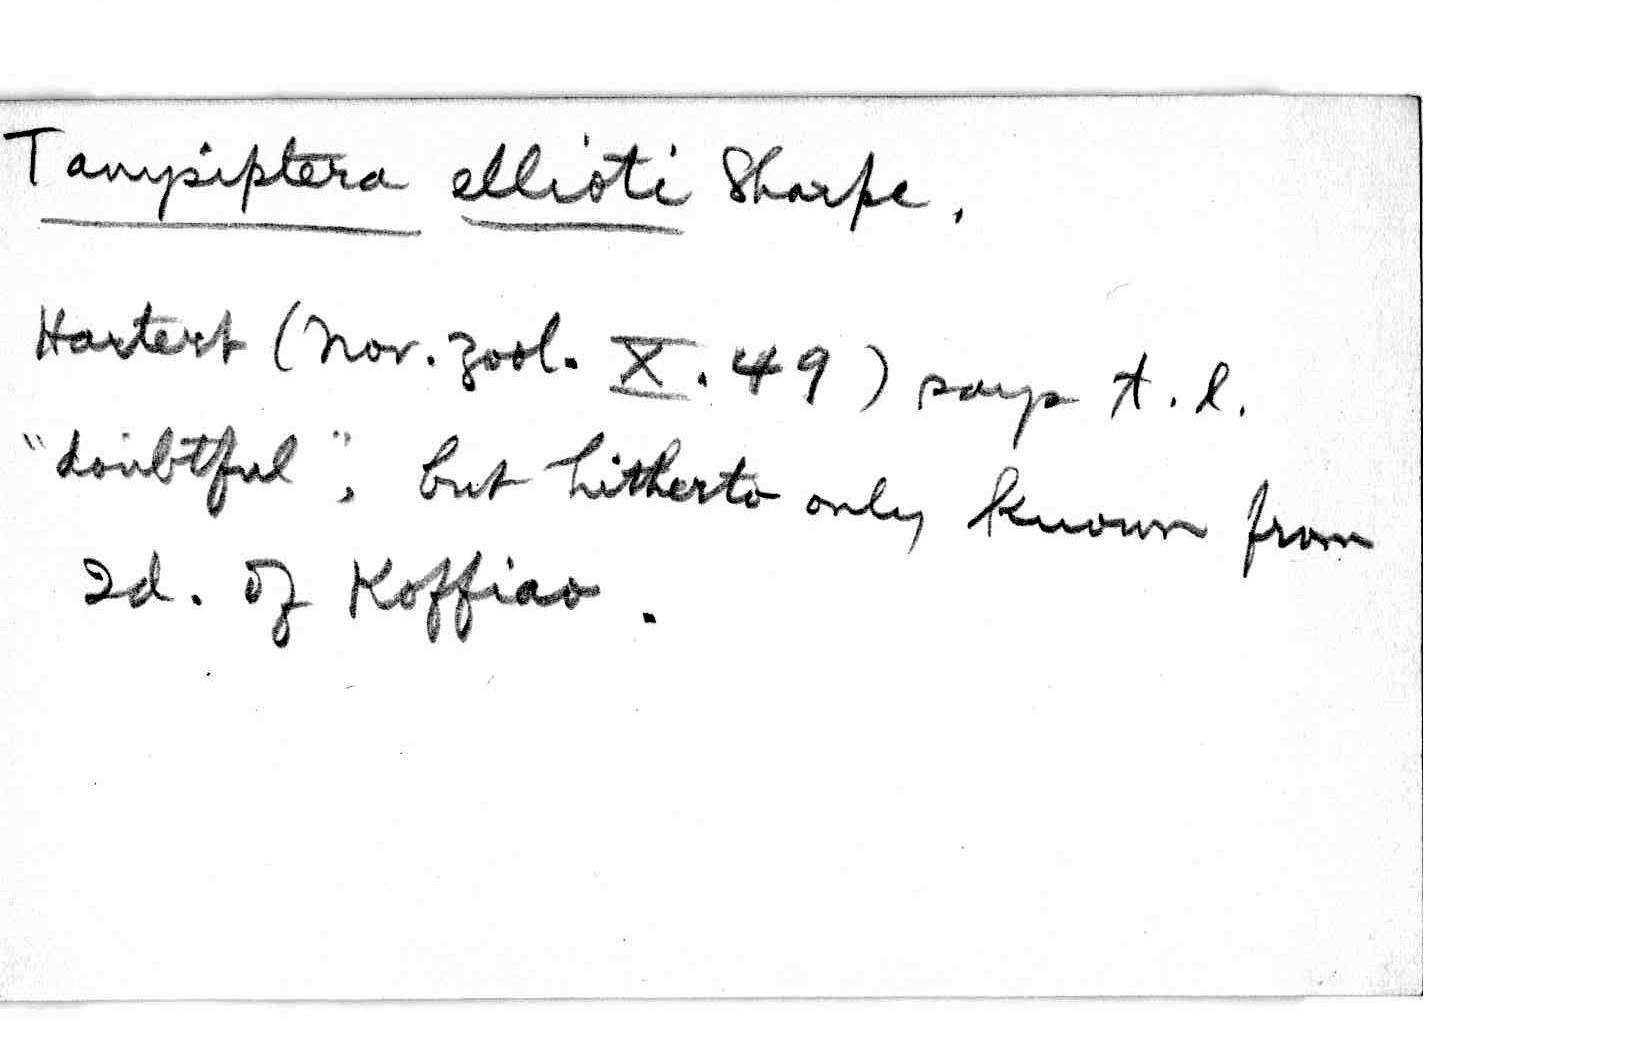 Tanysiptera ellioti Sharpe.
Hartert (Nov. Zool. X. 49) says t. l.
"doubtful", but hitherto only known from
Id. of Koffiao.